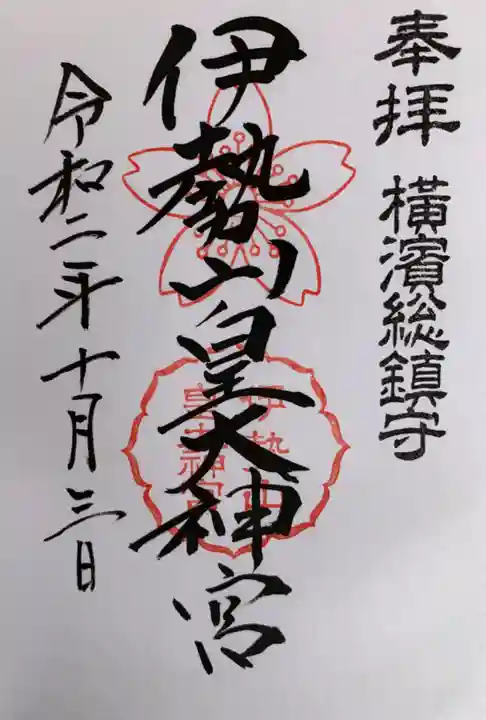 奉拝 横濱総鎮守
伊勢山皇大神宮
伊勢山
皇大神宮
令和二年十月三日